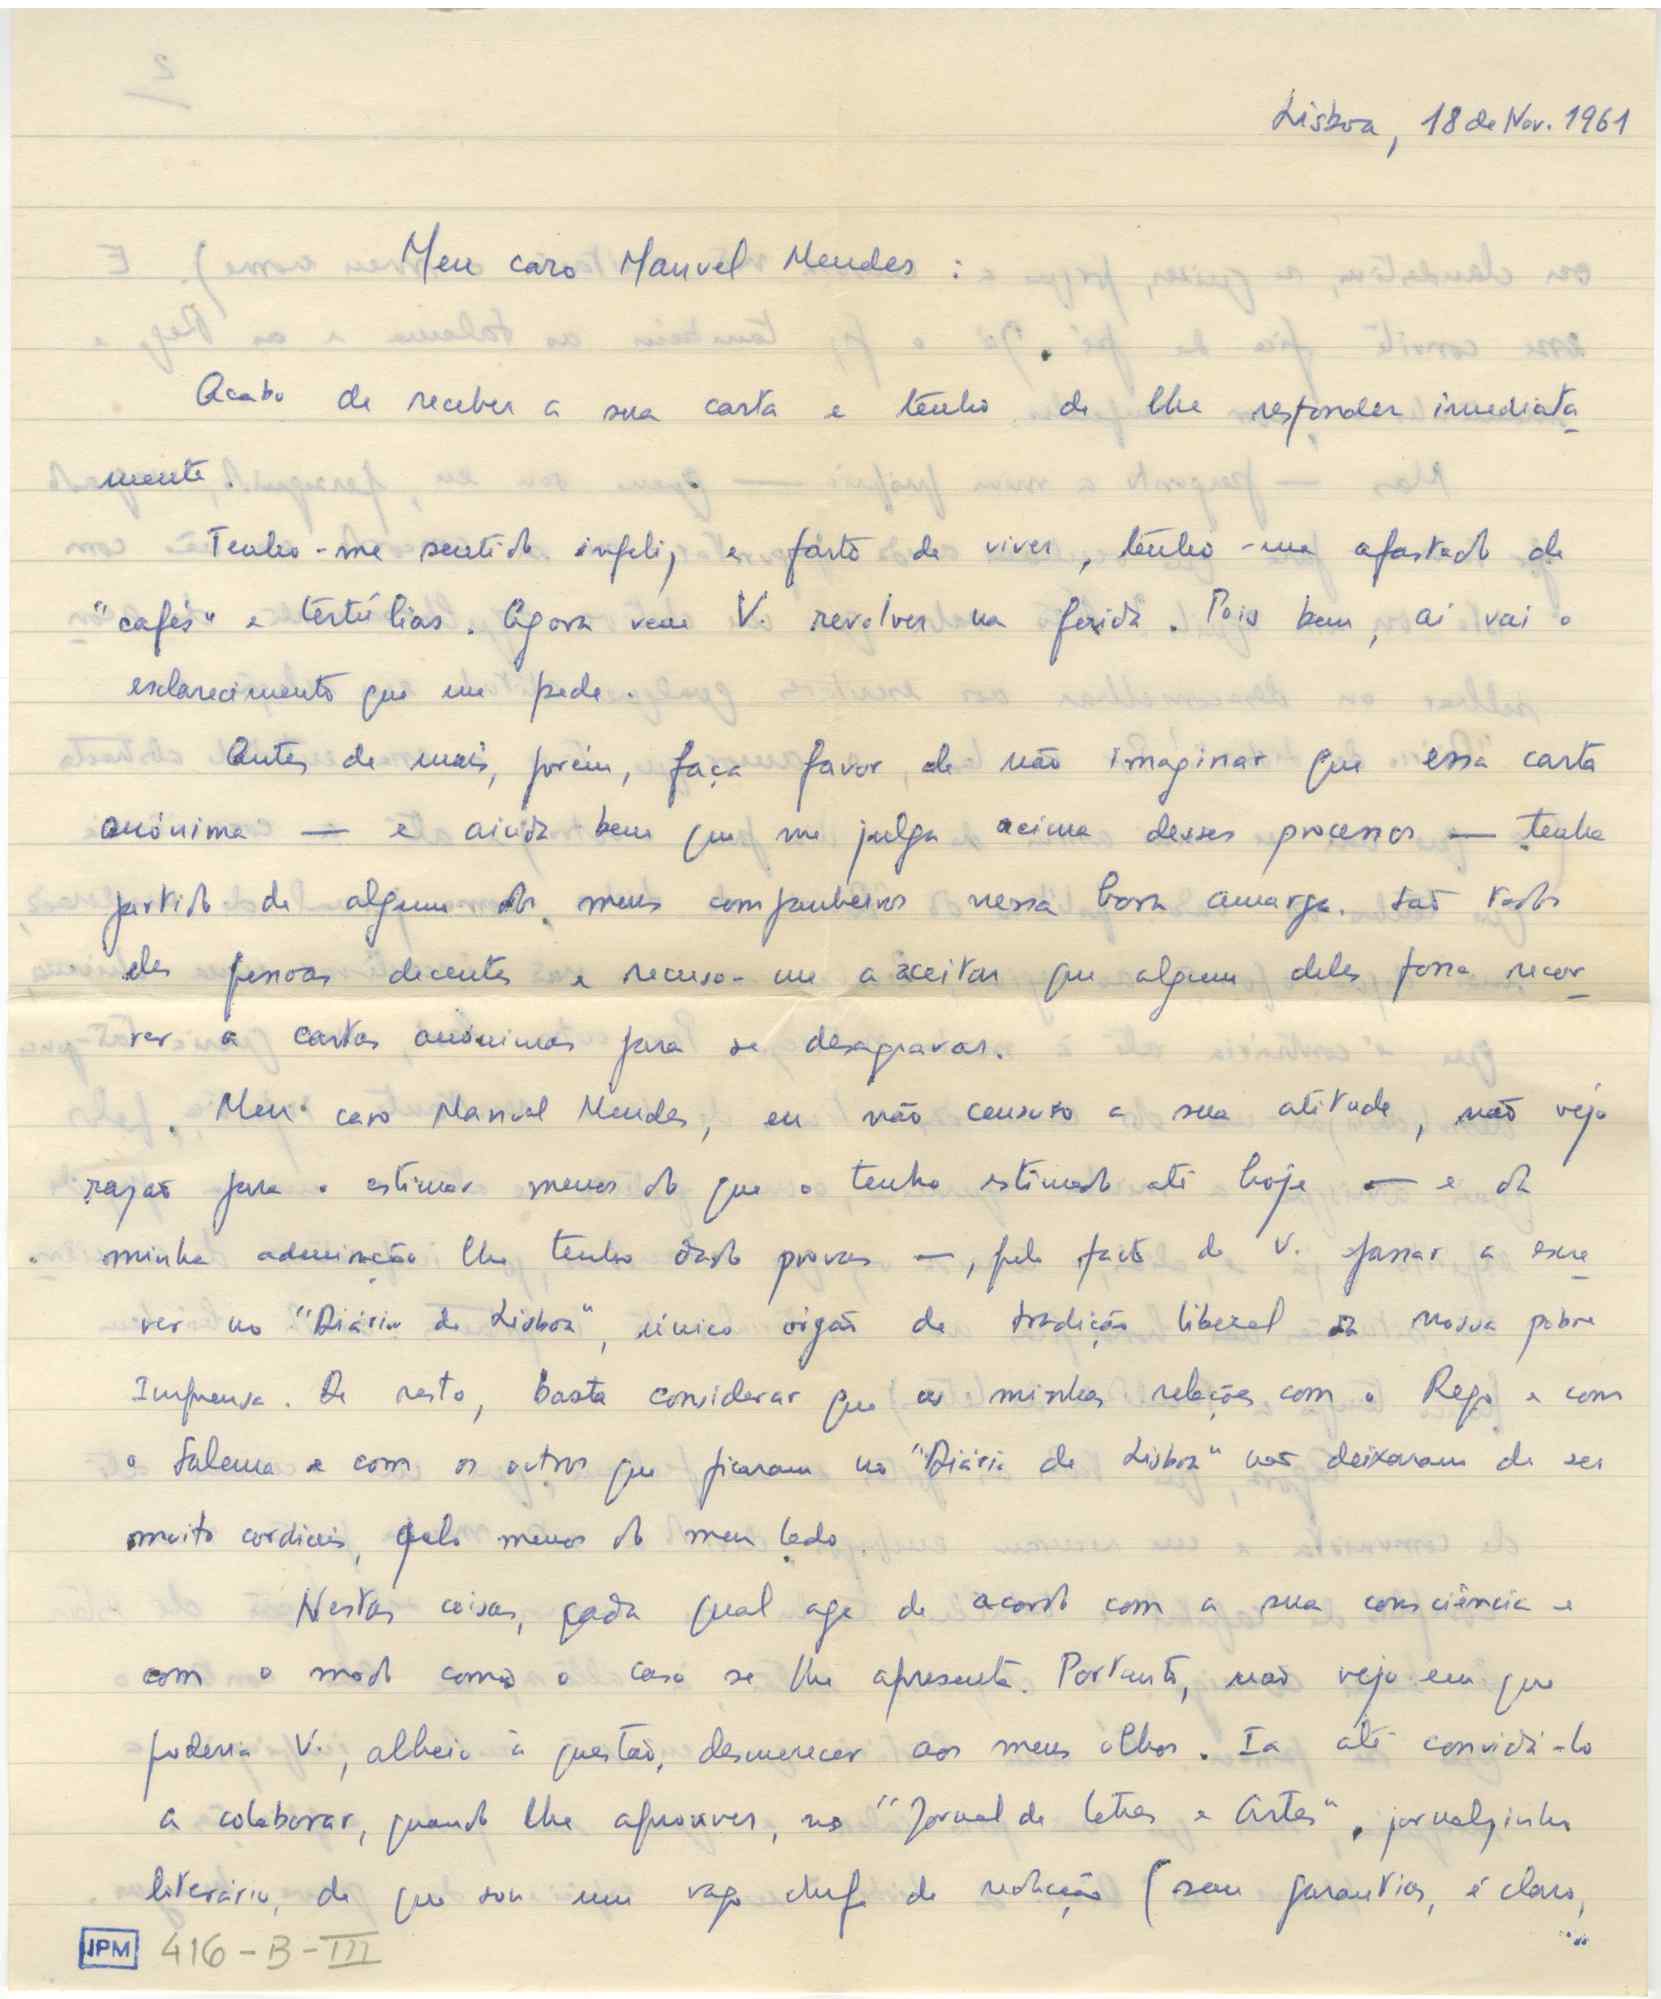 Lisboa, 18 de Nov. 1961
Meu caro Manuel Mendes :
Acabo de receber a sua carta e tenho de lhe responder imediata-
mente.
Tenho-me sentido infeliz e farto de viver, tenho-me afastado de
"cafés" e tertúlias. Agora vem V. revolver na ferida. Pois bem, aí vai o
esclarecimento que me pede.
Antes de mais, porém, faça favor de não imaginar que essa carta
anónima — e ainda bem que me julga acima desses processos — tenha
partido de algum dos meus companheiros nessa hora amarga. São todos
eles pessoas decentes e recuso-me a aceitar que algum deles possa recor-
rer a cartas anónimas para se desagravar.
Meu caro Manuel Mendes, eu não censuro a sua atitude, não vejo
razão para o estimar menos do que o tenho estimado até hoje — e da
minha admiração lhe tenho dado provas —, pelo facto de V. passar a escre-
ver no "Diário de Lisboa", único órgão de tradição liberal da nossa pobre
Imprensa. De resto, basta considerar que as minhas relações com o Rego e com
o Salema e com os outros que ficaram no "Diário de Lisboa" não deixaram de ser
muito cordiais, pelo menos do meu lado.
Nestas coisas, cada qual age de acordo com a sua consciência e
com o modo como o caso se lhe apresenta. Portanto, não vejo em que
poderia V., alheio à questão, desmerecer aos meus olhos. Ia até convidá-lo
a colaborar, quando lhe aprouver, no "Jornal de Letras e Artes", jornalzinho
literário, de que sou um vago chefe de redacção (sem garantias, é claro,
..
IPM 416-B-III
2